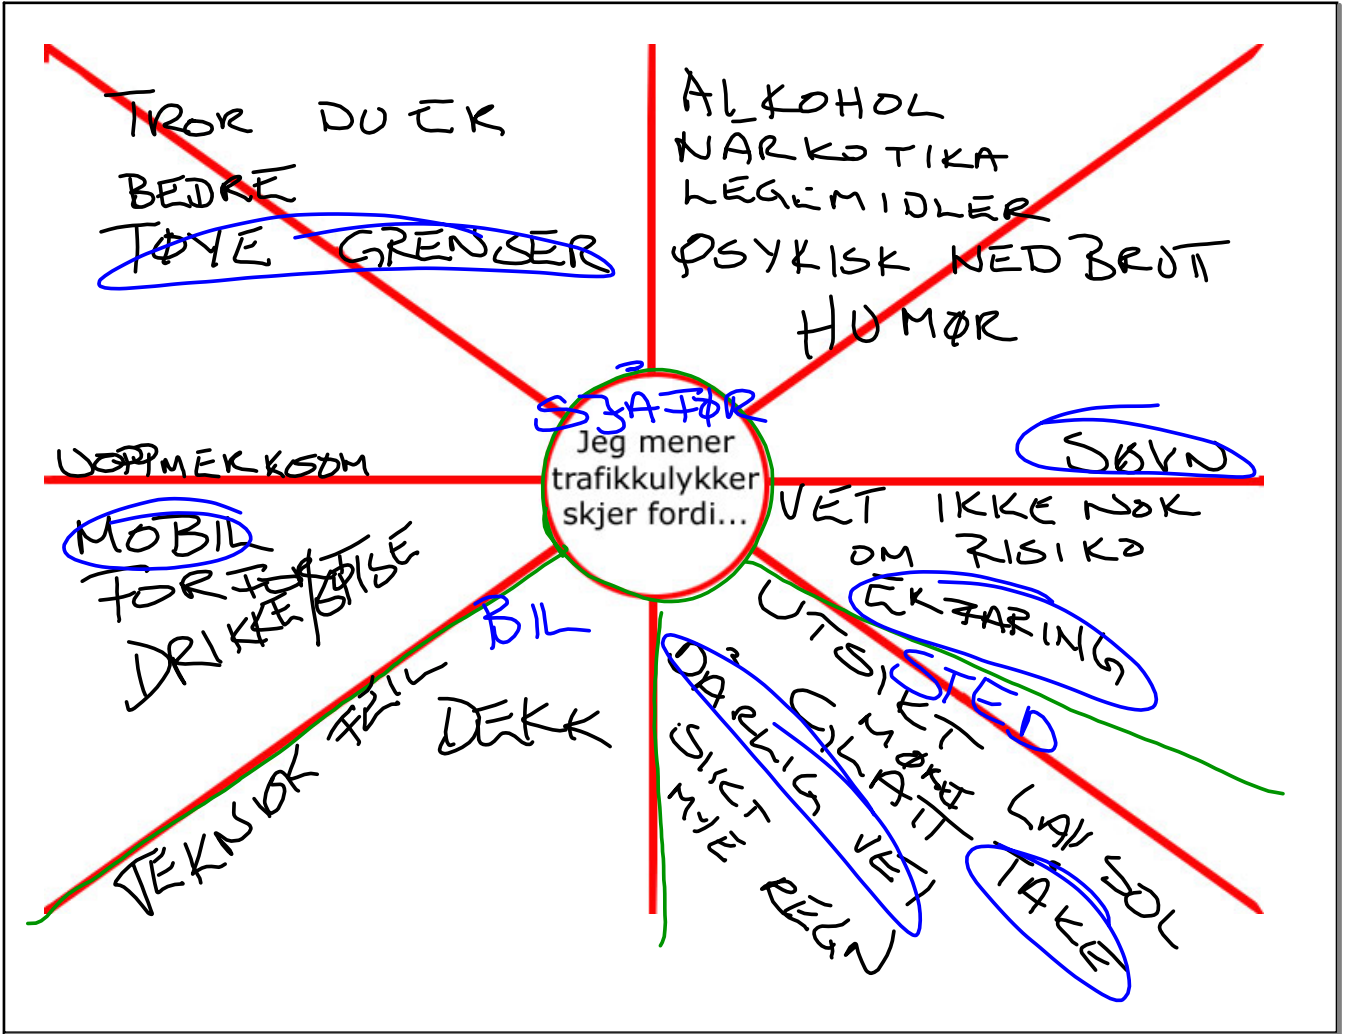 TROR DU ER
BEDRE
TØYE GRENSER
ALKOHOL
NARKOTIKA
LEGEMIDLER
PSYKISK NEDBRUTT
HUMØR
SJÅFØR
Jeg mener
trafikkulykker
skjer fordi...
UOPPMERKSOM
MOBIL
FOR FORT
DRIKKE/SPISE
SØVN
VET IKKE NOK
OM RISIKO
ERFARING
BIL
TEKNISK FEIL
DEKK
STED
UTSIKT
MØRKT
GLATT
DÅRLIG VEI
SIKT
MYE REGN
LAV SOL
TÅKE